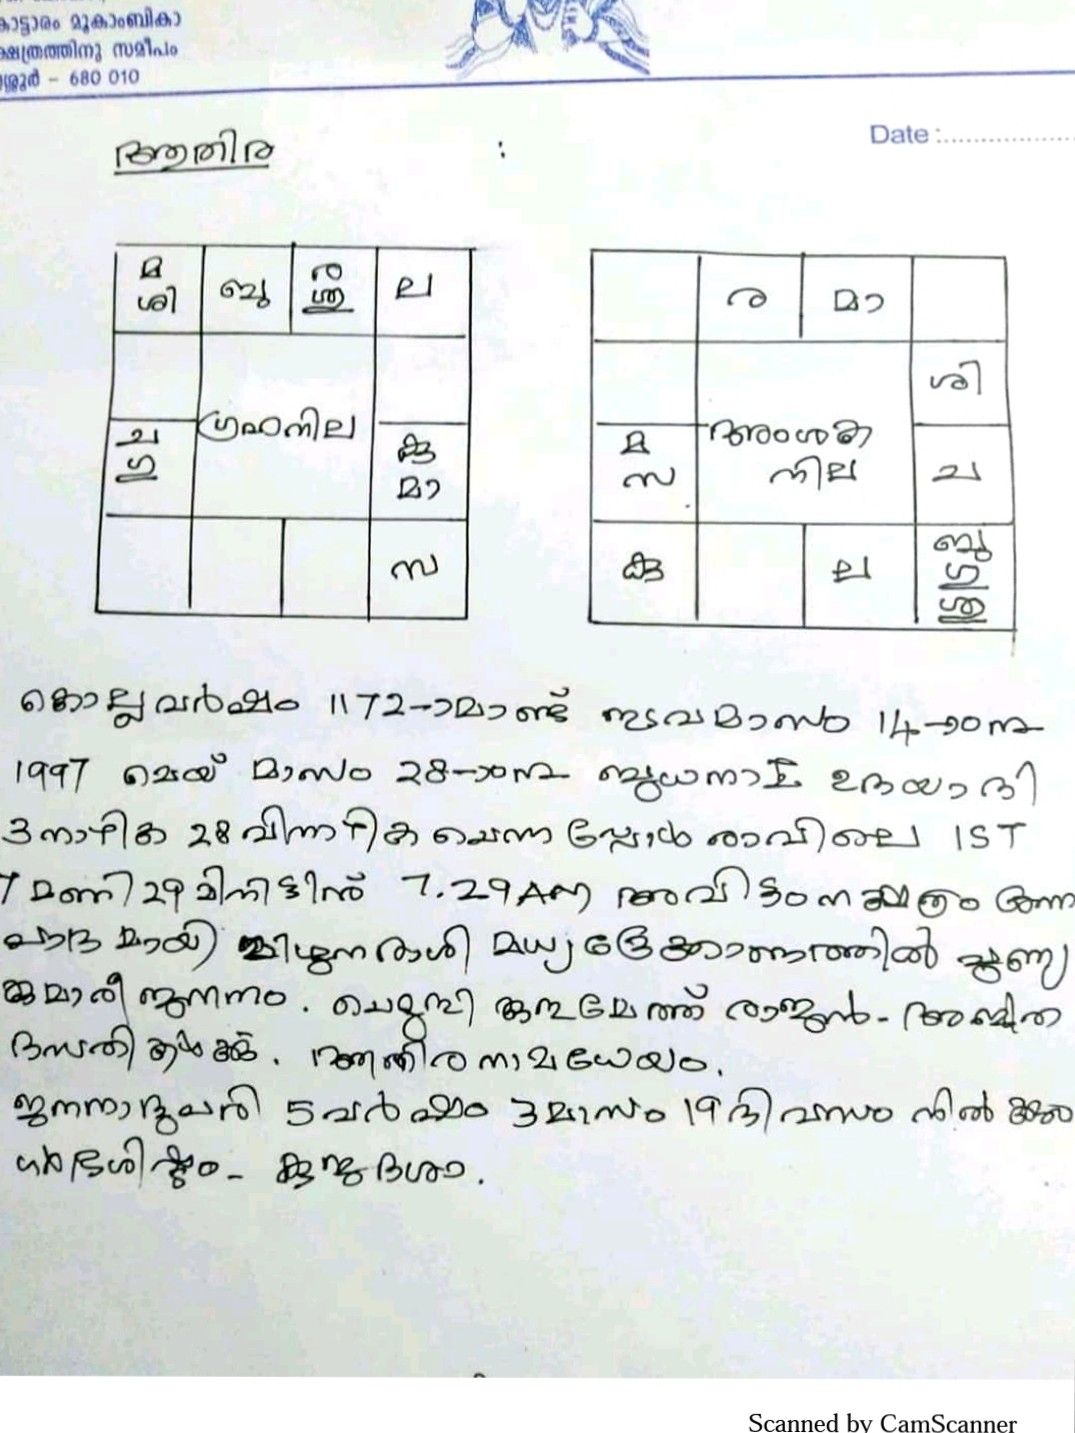 കൊട്ടാരം മൂകാംബികാ
ക്ഷേത്രത്തിനു സമീപം
– 680 010
Date :
ആതിര :
മ ബു ര ല
ശി ശു
ഗ്രഹനില
ച കു
ഗു മാ
സ
ര മാ
ശി
അംശക
നില
മ ച
സ
കു ല ബു
ഗു
ശു
കൊല്ലവർഷം 1172-ാമാണ്ട് ഇടവമാസം 14-ാംനു
1997 മെയ് മാസം 28-ാംനു ബുധനാഴ്ച ഉദയാദി
3 നാഴിക 28 വിനാഴിക ചെന്നപ്പോൾ രാവിലെ IST
7 മണി 29 മിനിട്ടിന് 7.29 AM അവിട്ടം നക്ഷത്രം
പാദമായി മിഥുനരാശി മധ്യദ്രേക്കാണത്തിൽ പുണ്യ
കുമാരീ ജനനം. രാജൻ -
ദമ്പതികൾക്ക്. ആതിര നാമധേയം.
ജനനാൽപരി 5 വർഷം 3 മാസം 19 ദിവസം നിൽക്കും
ഗർഭശിഷ്ടം - കുജദശാ.
Scanned by CamScanner